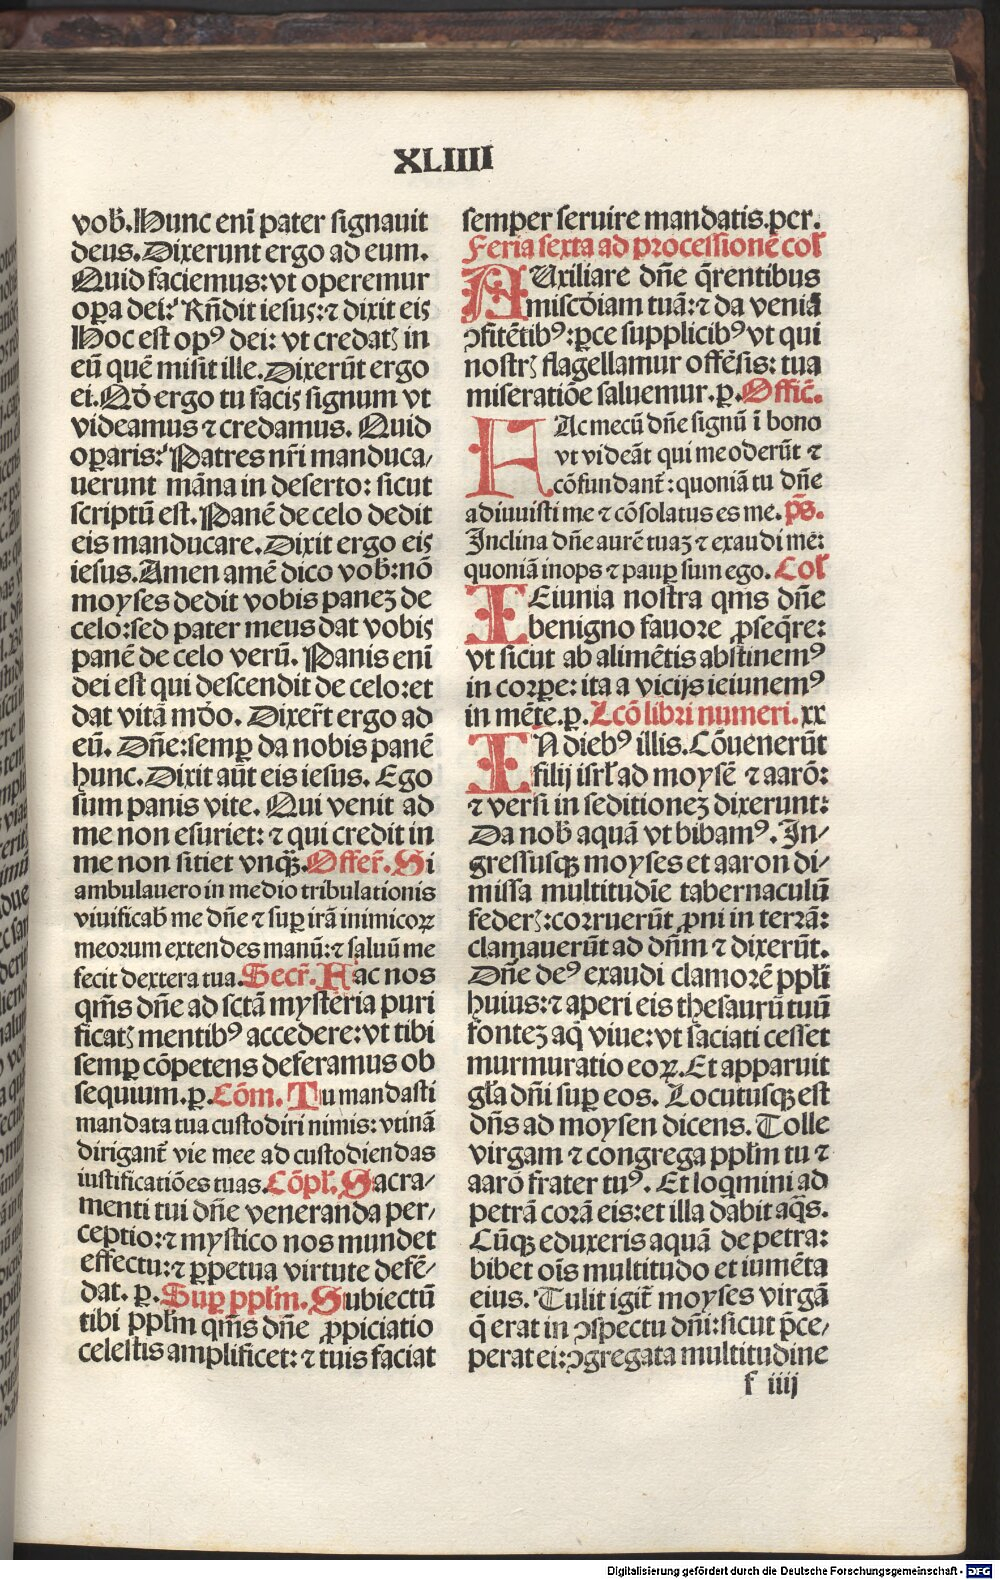 XLIIII
vob̄. Hunc eni᷑ pater signauit
deus. Dixerunt ergo ad eum.
Quid faciemus: vt operemur
oꝑa dei: Rn̄dit iesus: ⁊ dixit eis
Hoc est opꝰ dei: vt credatꝭ in
eū quē misit ille. Dixerūt ergo
ei. Qd̄ ergo tu facis signum vt
videamus ⁊ credamus. Quid
oꝑaris: Patres nr̄i manduca/
uerunt māna in deserto: sicut
scriptū est. Panē de celo dedit
eis manducare. Dixit ergo eis
iesus. Amen amē dico vob̄: nō
moyses dedit vobis paneꝫ de
celo: sed pater meus dat vobis
panē de celo verū. Panis enī
dei est qui descendit de celo: et
dat vitā mūdo. Dixer̄t ergo ad
eū. Dn̄e: semꝑ da nobis panē
hunc. Dixit aūt eis iesus. Ego
sum panis vite. Qui venit ad
me non esuriet: ⁊ qui credit in
me non sitiet vnqꝫ. Offer̄. Si
ambulauero in medio tribulationis
viuificab̄ me dn̄e ⁊ suꝑ irā inimicoꝝ
meorum extendes manū: ⁊ saluū me
fecit dextera tua. Secr̄. Hac nos
qm̄s dn̄e ad sctā mysteria puri
ficatꝭ mentibꝰ accedere: vt tibi
semꝑ cōpetens deferamus ob
sequium. ꝑ. Cōm. Tu mandasti
mandata tua custodiri nimis: vtinā
dirigant̄ vie mee ad custodiendas
iustificatiōes tuas. Cōpl̄. Sacra/
menti tui dn̄e veneranda per/
ceptio: ⁊ mystico nos mundet
effectu: ⁊ ꝑpetua virtute defē/
dat. ꝑ. Suꝑ ppl̄m. Subiectū
tibi ppl̄m qm̄s dn̄e ꝓpiciatio
celestis amplificet: ⁊ tuis faciat
semper seruire mandatis. per.
Feria sexta ad processionē col̄
AUxiliare dn̄e q̄rentibus
mis̄cdiam tuā: ⁊ da veniā
ꝯfitētibꝰ: ꝑce supplicibꝰ vt qui
nostrꝭ flagellamur offēsis: tua
miseratiōe saluemur. ꝑ. Offic̄.
FAc mecū dn̄e signū ī bono
vt videāt qui me oderūt ⁊
cōfundant̄: quoniā tu dn̄e
adiuuisti me ⁊ cōsolatus es me. p̄s.
Inclina dn̄e aurē tuaꝫ ⁊ exaudi me:
quoniā inops ⁊ pauꝑ sum ego. Col̄
IEiunia nostra qm̄s dn̄e
benigno fauore ꝓseq̄re:
vt sicut ab alimētis abstinemꝰ
in corꝑe: ita a vicijs ieiunemꝰ
in mēte. ꝑ. Lcō libri numeri. xx
IN diebꝰ illis. Cōuenerūt
filij isrl̄ ad moysē ⁊ aarō:
⁊ versi in seditioneꝫ dixerunt:
Da nob̄ aquā vt bibamꝰ. In/
gressusqꝫ moyses et aaron di/
missa multitudīe tabernaculū
federꝭ: corruerūt ꝓni in terrā:
clamauerūt ad dn̄m ⁊ dixerūt.
Dn̄e deꝰ exaudi clamorē ppl̄i
huius: ⁊ aperi eis thesaurū tuū
fonteꝫ aq̄ viue: vt saciati cesset
murmuratio eoꝝ. Et apparuit
gl̄a dn̄i suꝑ eos. Locutusqꝫ est
dn̄s ad moysen dicens. Tolle
virgam ⁊ congrega ppl̄m tu ⁊
aarō frater tuꝰ. Et loq̄mini ad
petrā corā eis: et illa dabit aq̄s.
Cūqꝫ eduxeris aquā de petra:
bibet oīs multitudo et iumēta
eius. Tulit igit̄ moyses virgā
q̄ erat in ꝯspectu dn̄i: sicut p̄ce/
perat ei: ꝯgregata multitudine
f iiij
Digitalisierung gefördert durch die Deutsche Forschungsgemeinschaft - DFG